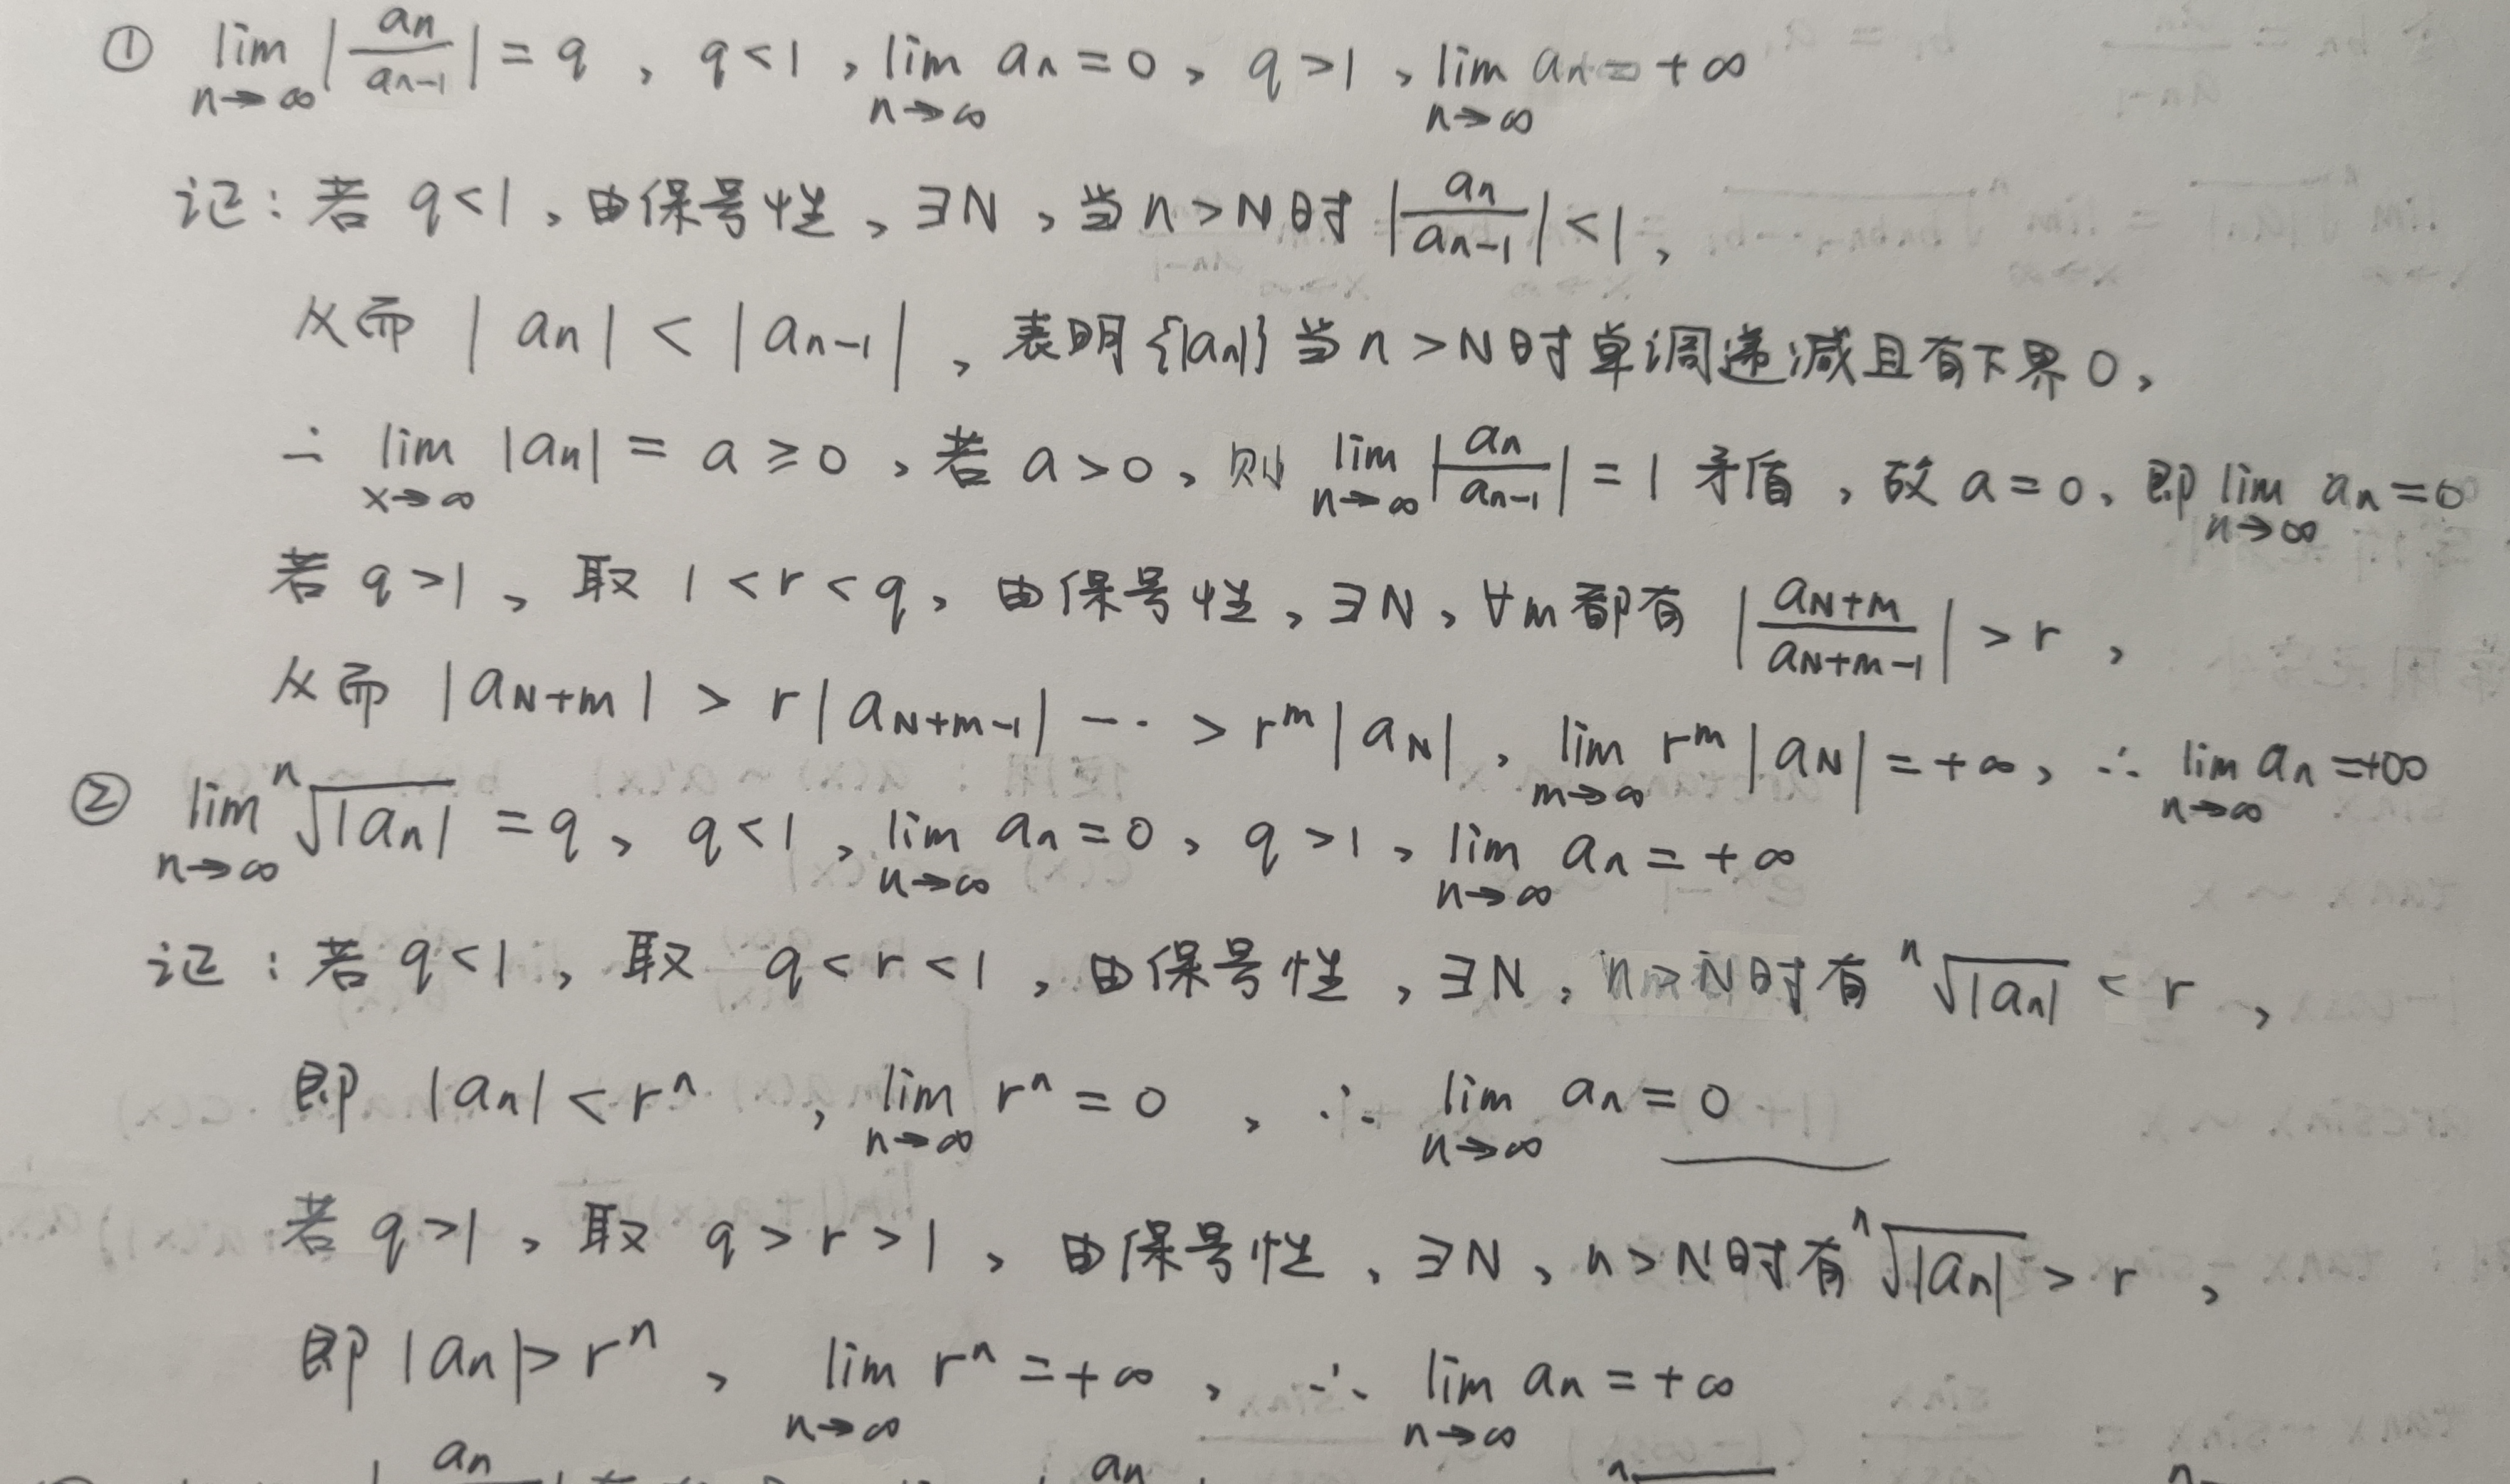 ① lim_{n→∞} |a_n/a_{n-1}| = q , q<1 , lim_{n→∞} a_n = 0 , q>1 , lim_{n→∞} a_n = +∞
记: 若 q<1 , 由保号性 , ∃N , 当 n>N时 |a_n/a_{n-1}| <1 ,
从而 |a_n| < |a_{n-1}| , 表明{|a_n|}当 n>N时单调递减且有下界0 ,
∴ lim_{x→∞} |a_n| = a ≥ 0 , 若 a>0 , 则 lim_{n→∞} |a_n/a_{n-1}| = 1 矛盾 , 故 a=0 , 即 lim_{n→∞} a_n = 0
若 q>1 , 取 1<r<q , 由保号性 , ∃N , ∀m都有 |a_{N+m}/a_{N+m-1}| > r ,
从而 |a_{N+m}| > r|a_{N+m-1}| ... > r^m|a_N| , lim_{m→∞} r^m|a_N| = +∞ , ∴ lim_{n→∞} a_n = +∞
② lim_{n→∞} ⁿ√|a_n| = q , q<1 , lim_{n→∞} a_n = 0 , q>1 , lim_{n→∞} a_n = +∞
记: 若 q<1 , 取 q<r<1 , 由保号性 , ∃N , n>N时有 ⁿ√|a_n| < r ,
即 |a_n| < r^n , lim_{n→∞} r^n = 0 , ∴ lim_{n→∞} a_n = 0
若 q>1 , 取 q>r>1 , 由保号性 , ∃N , n>N时有 ⁿ√|a_n| > r ,
即 |a_n| > r^n , lim_{n→∞} r^n = +∞ , ∴ lim_{n→∞} a_n = +∞